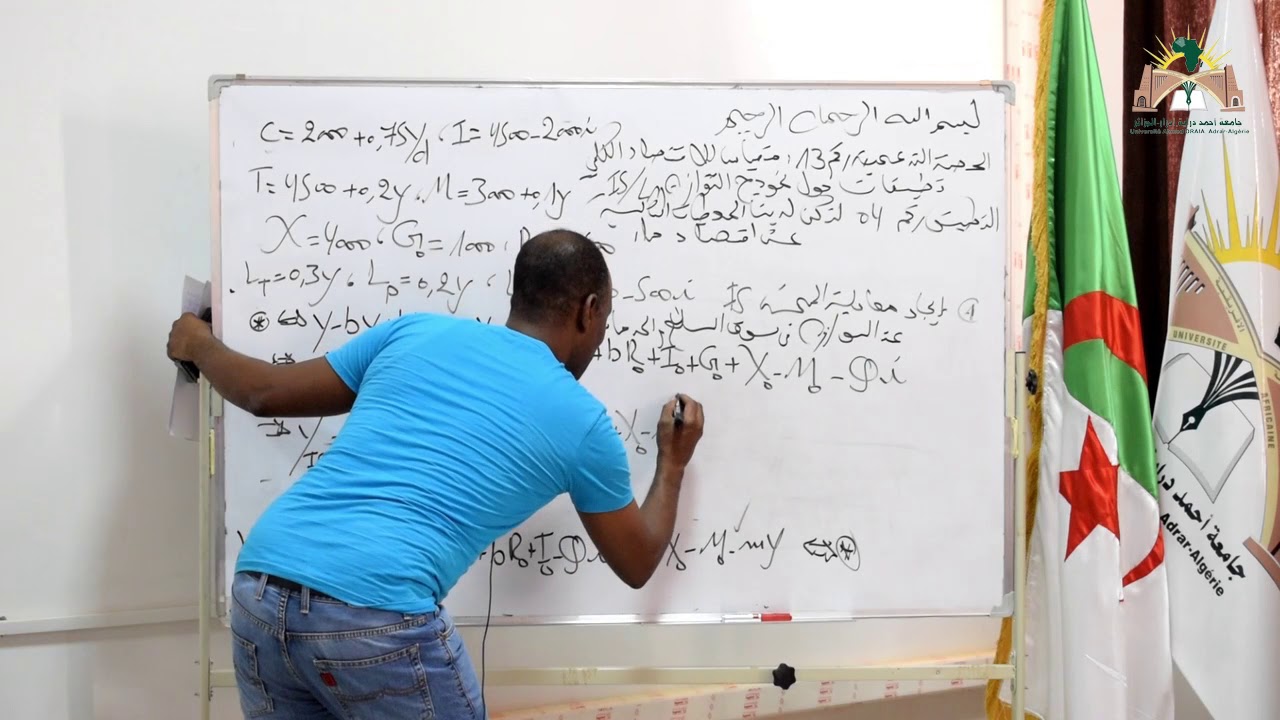 بسم الله الرحمان الرحيم
الحصة التدعيمية رقم 13 : مقياس الاقتصاد الكلي
تطبيقات حول نموذج التوازن IS/LM
التطبيق رقم 04 لتكن لدينا المعطيات التالية
عن اقتصاد ما:
C = 2000 + 0,75yd I = 4500 - 2000i
T = 4500 + 0,2y , M = 3000 + 0,1y
X = 4000 , G₀ = 1000 ,
LT = 0,3y , Lp = 0,2y ,
- 500i
① إيجاد معادلة المنحنى IS
عند التوازن في سوق السلع والخدمات
⊛ ⇔ y - by
+ bR₀ + I₀ + G₀ + X₀ - M₀ - Φi
+ X₀ -
+ bR₀ + I₀ - Φi
X₀ - M₀ - my ⇔ ⊛
جامعة أحمد دراية أدرار-الجزائر
Université Ahmed DRAIA Adrar-Algérie
UNIVERSITE
AFRICAINE
جامعة أحمد دراية
Adrar-Algérie